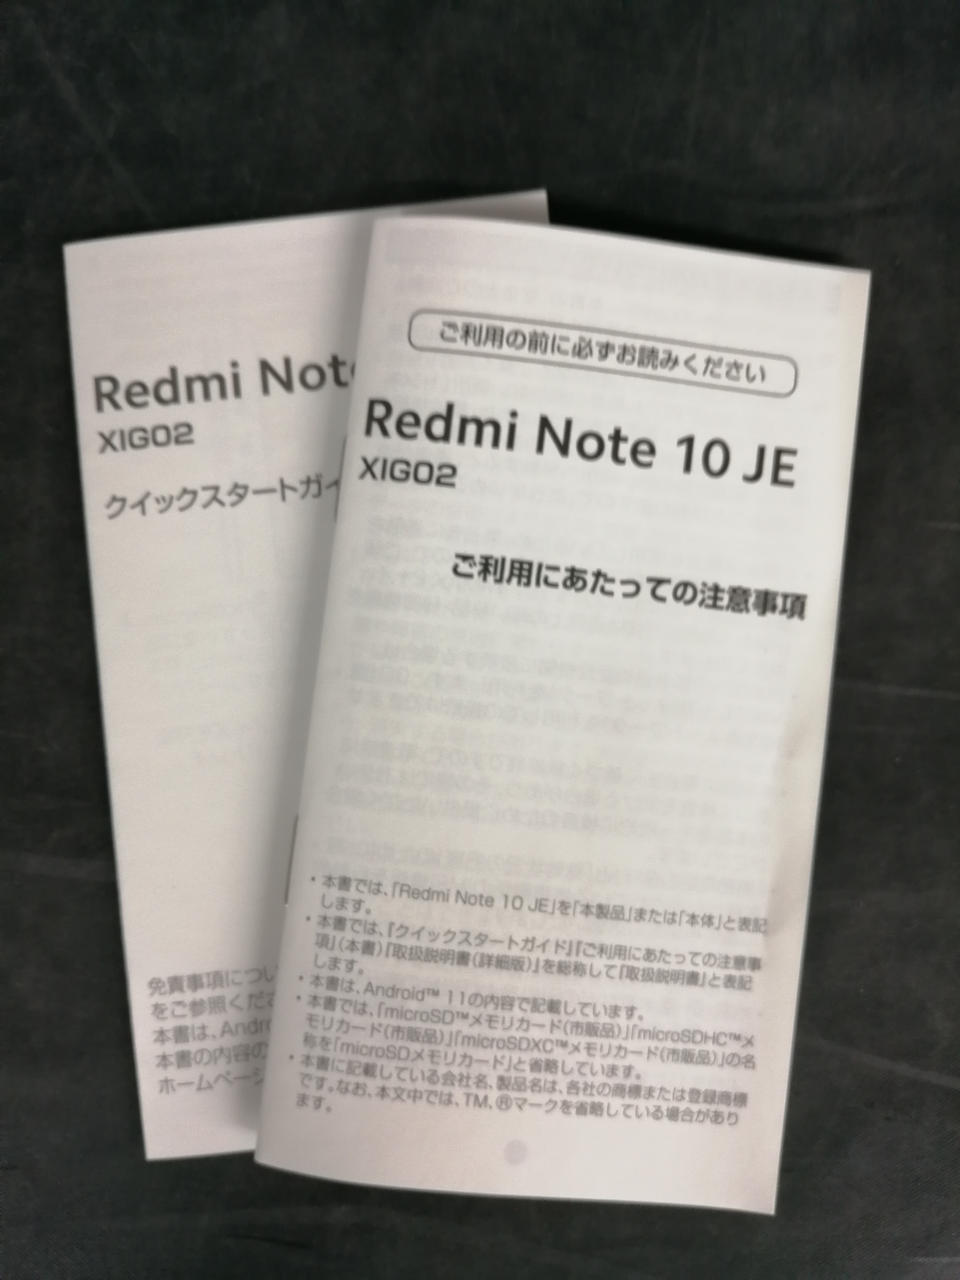 Redmi Not
XIG02
クイックスタートガイ
免責事項につい
をご参照くださ
本書は、Andro
本書の内容の
ホームページ
ご利用の前に必ずお読みください
Redmi Note 10 JE
XIG02
ご利用にあたっての注意事項
・本書では、「Redmi Note 10 JE」を「本製品」または「本体」と表記
します。
・本書では、『クイックスタートガイド』『ご利用にあたっての注意事
項』(本書)『取扱説明書(詳細版)』を総称して『取扱説明書』と表記
します。
・本書は、Android™ 11の内容で記載しています。
・本書では、「microSD™メモリカード(市販品)」「microSDHC™メ
モリカード(市販品)」「microSDXC™メモリカード(市販品)」の名
称を「microSDメモリカード」と省略しています。
・本書に記載している会社名、製品名は、各社の商標または登録商標
です。なお、本文中では、TM、®マークを省略している場合があり
ます。